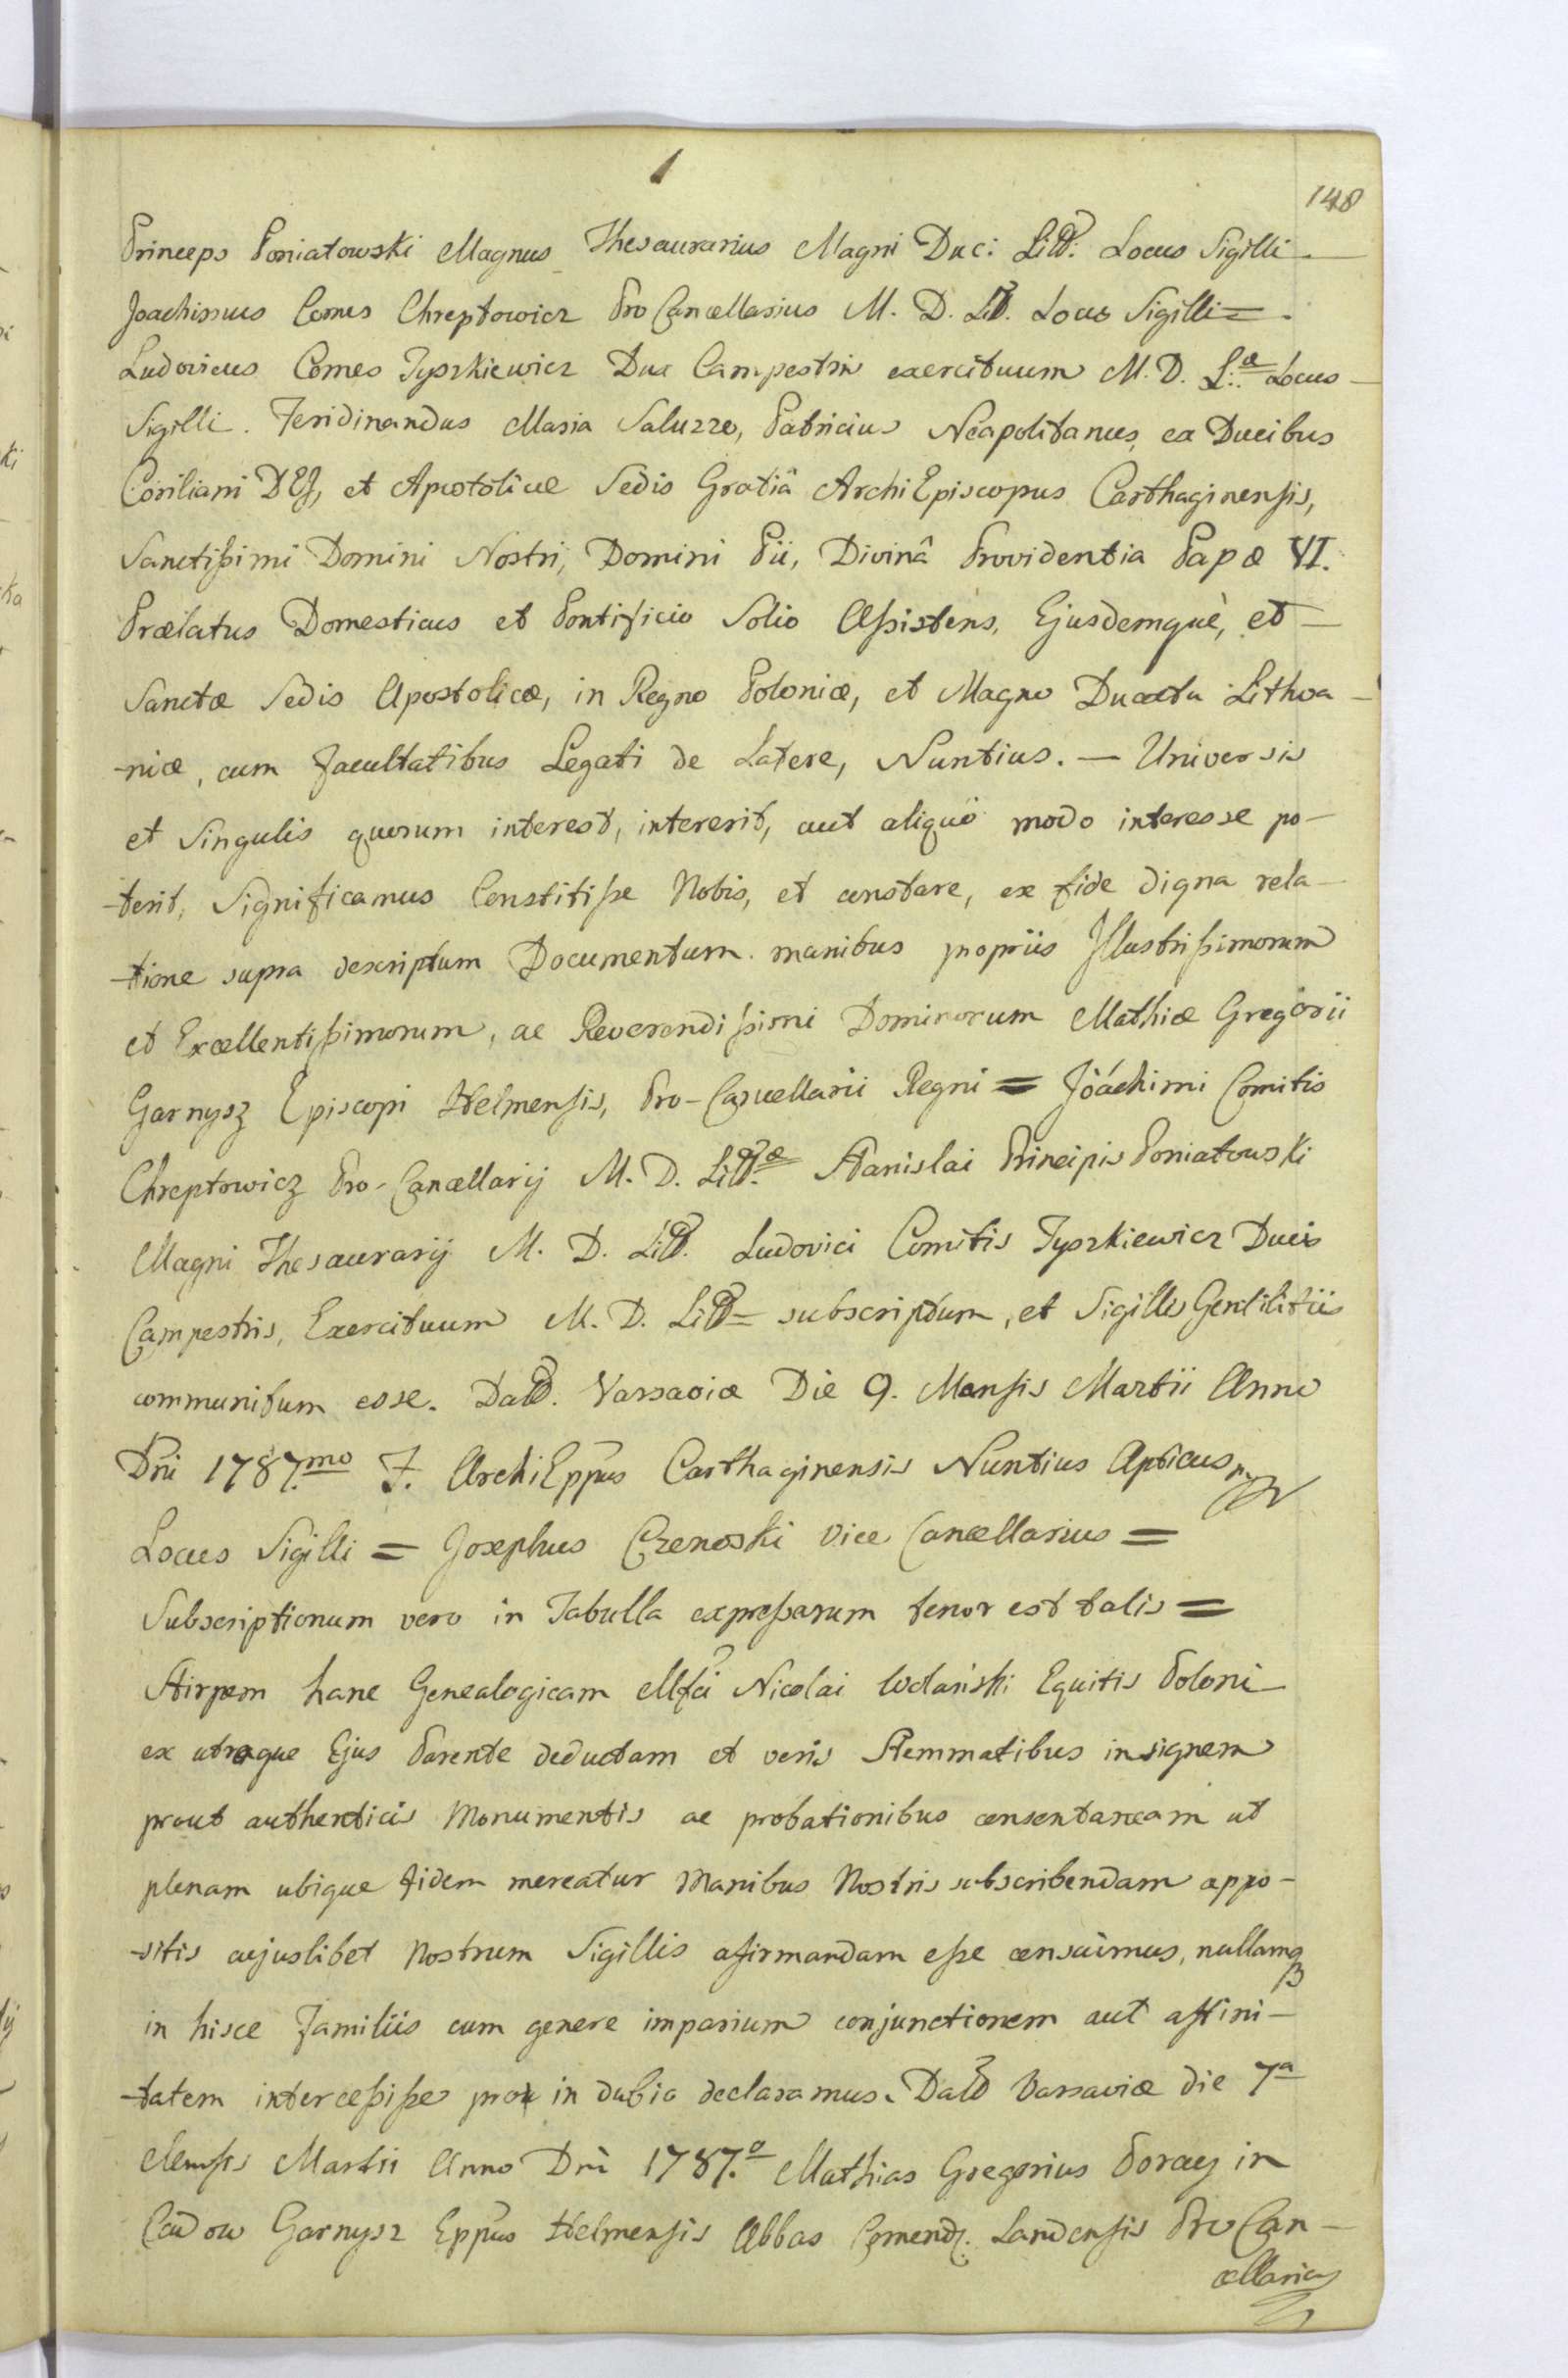 1
148
Princeps Poniatowski Magnus Thesaurarius Magni Duc: Litt: Locus Sigilli
Joachimus Comes Chreptowicz Pro Cancellarius M. D. Litt. Locus Sigilli =
Ludovicus Comes Tyszkiewicz Dux Campestris exercituum M. D. L:æ Locus
Sigilli. Feridinandus Maria Saluzzo, Patricius Neapolitanus, ex Ducibus
Coriliani DEI, et Apostolicæ Sedis Gratiâ ArchiEpiscopus Carthaginensis,
Sanctissimi Domini Nostri, Domini Pii, Divinâ Providentia Papæ VI.
Prælatus Domesticus et Pontificio Solio Assistens, Ejusdemquè, et
Sanctæ Sedis Apostolicæ, in Regno Poloniæ, et Magno Ducatu Lithva-
-niæ, cum facultatibus Legati de Latere, Nuntius. — Universis
et Singulis quorum interest, intererit, aut aliquó modo interesse po-
-terit, Significamus Constitisse Nobis, et constare, ex fide digna rela-
-tione supra descriptum Documentum manibus propriis Illustrissimorum
et Excellentissimorum, ac Reverendissimi Dominorum Mathiæ Gregorii
Garnysz Episcopi Helmensis, Pro-Cancellarii Regni = Joáchimi Comitis
Chreptowicz Pro-Cancellarij M. D. Litt.æ Stanislai Principis Poniatowski
Magni Thesaurarij M. D. Litt. Ludovici Comitis Tyszkiewicz Ducis
Campestris, Exercituum M. D. Litt= subscriptum, et Sigillis Gentilitiis
communitum esse. Datt. Varsaviæ Die 9. Mensis Martii Anno
Dñi 1787.mo F. ArchiEppus Carthaginensis Nuntius Apticus mp
Locus Sigilli = Josephus Czenoski Vice Cancellarius =
Subscriptionum vero in Tabulla expressarum tenor est talis =
Stirpem hanc Genealogicam Mfci Nicolai Wolański Equitis Poloni
ex utroque Ejus Parente deductam et veris Stemmatibus insignem
prout authenticis Monumentis ac probationibus consentaneam ut
plenam ubique fidem mereatur Manibus Nostris subscribendam appo-
-sitis cujuslibet Nostrum Sigillis afirmandam esse censuimus, nullamq
in hisce Familiis cum genere imparium conjunctionem aut affini-
-tatem intercessisse pro in dubio declaramus. Datt Varsaviæ die 7a
Mensis Martii Anno Dñi 1787.o Mathias Gregorius Poray in
Cadow Garnysz Eppus Helmensis Abbas Comend. Landensis Pro Can-
cellarius